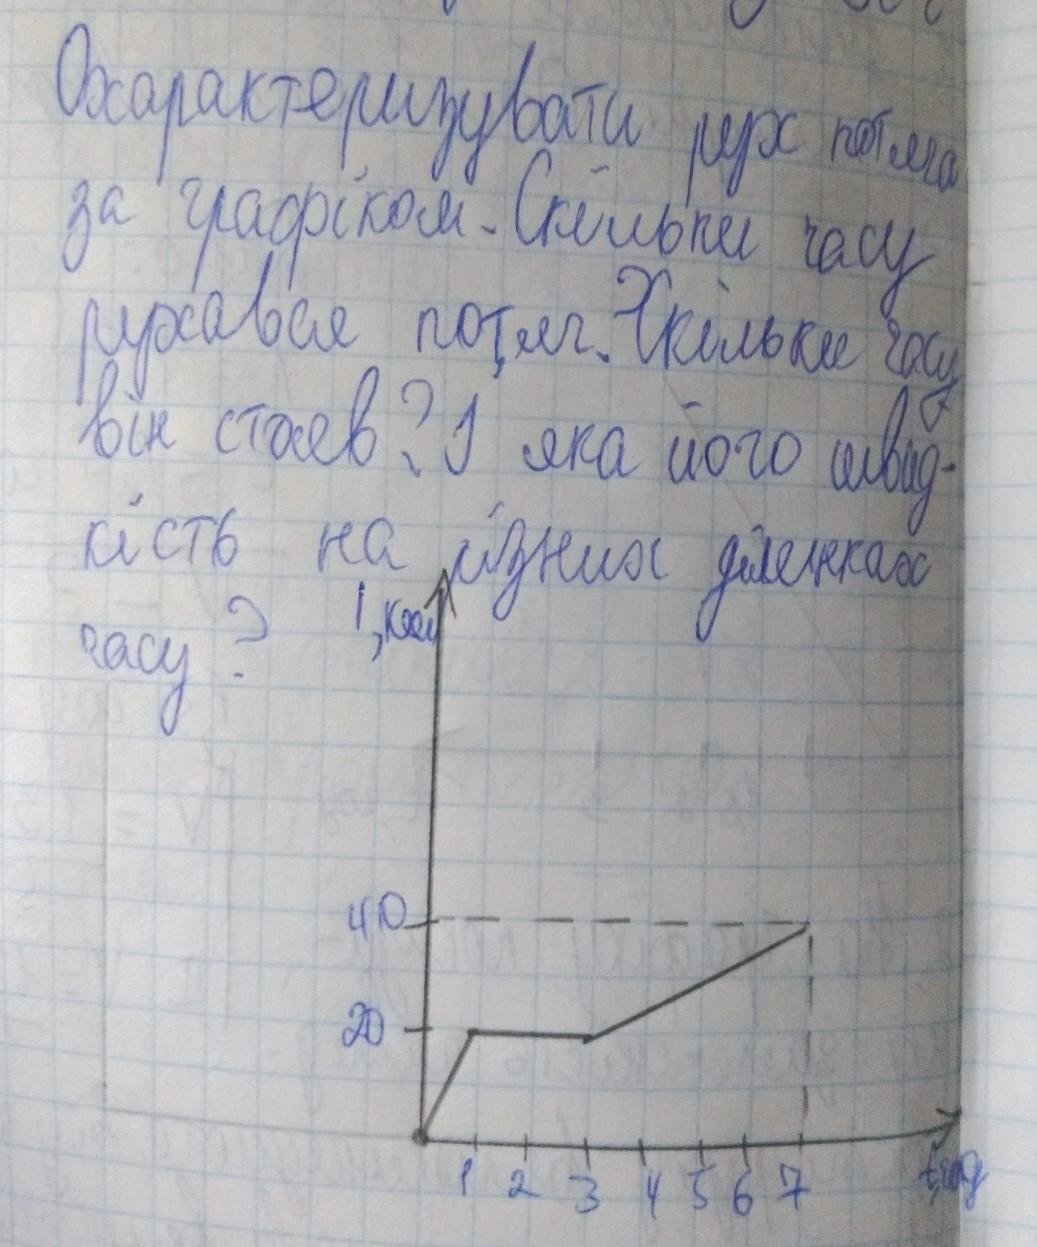 Охарактеризувати рух потяга
за графіком. Скільки часу
рухався потяг. Скільки часу
він стояв? І яка його швид-
кість на різних ділянках
часу?
l, км
40
20
1 2 3 4 5 6 7 t, год